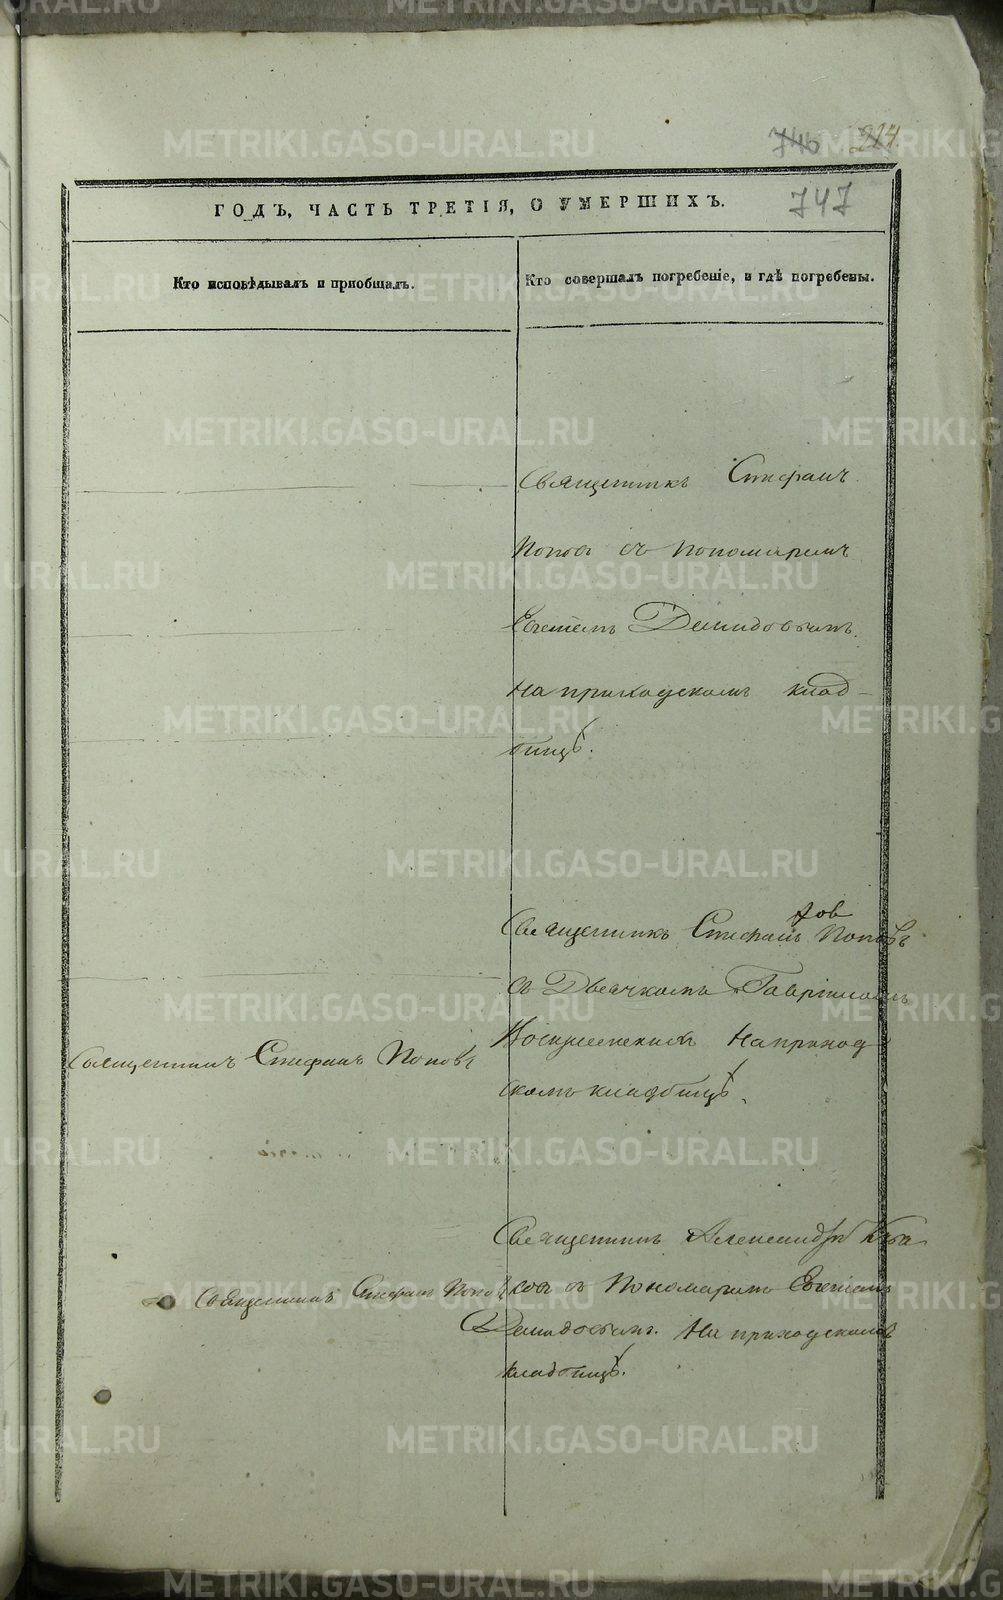 METRIKI.GASO-URAL.RU
746 224
747
ГОДЪ, ЧАСТЬ ТРЕТІЯ, О УМЕРШИХЪ.
Кто исповѣдывалъ и пріобщалъ.
Кто совершалъ погребеніе, и гдѣ погребены.
Священникъ Стефанъ
Поповъ съ Пономаремъ
Демидовымъ.
на приходскомъ клад-
бищѣ.
Священникъ Стефанъ Поповъ
съ Дьячкомъ Гавріиломъ
Воскресенскимъ на приход
скомъ кладбищѣ.
Священникъ Стефанъ Поповъ
Священникъ Александръ
съ Пономаремъ
Демидовымъ. на приходскомъ
кладбищѣ.
Священникъ Стефанъ Поповъ